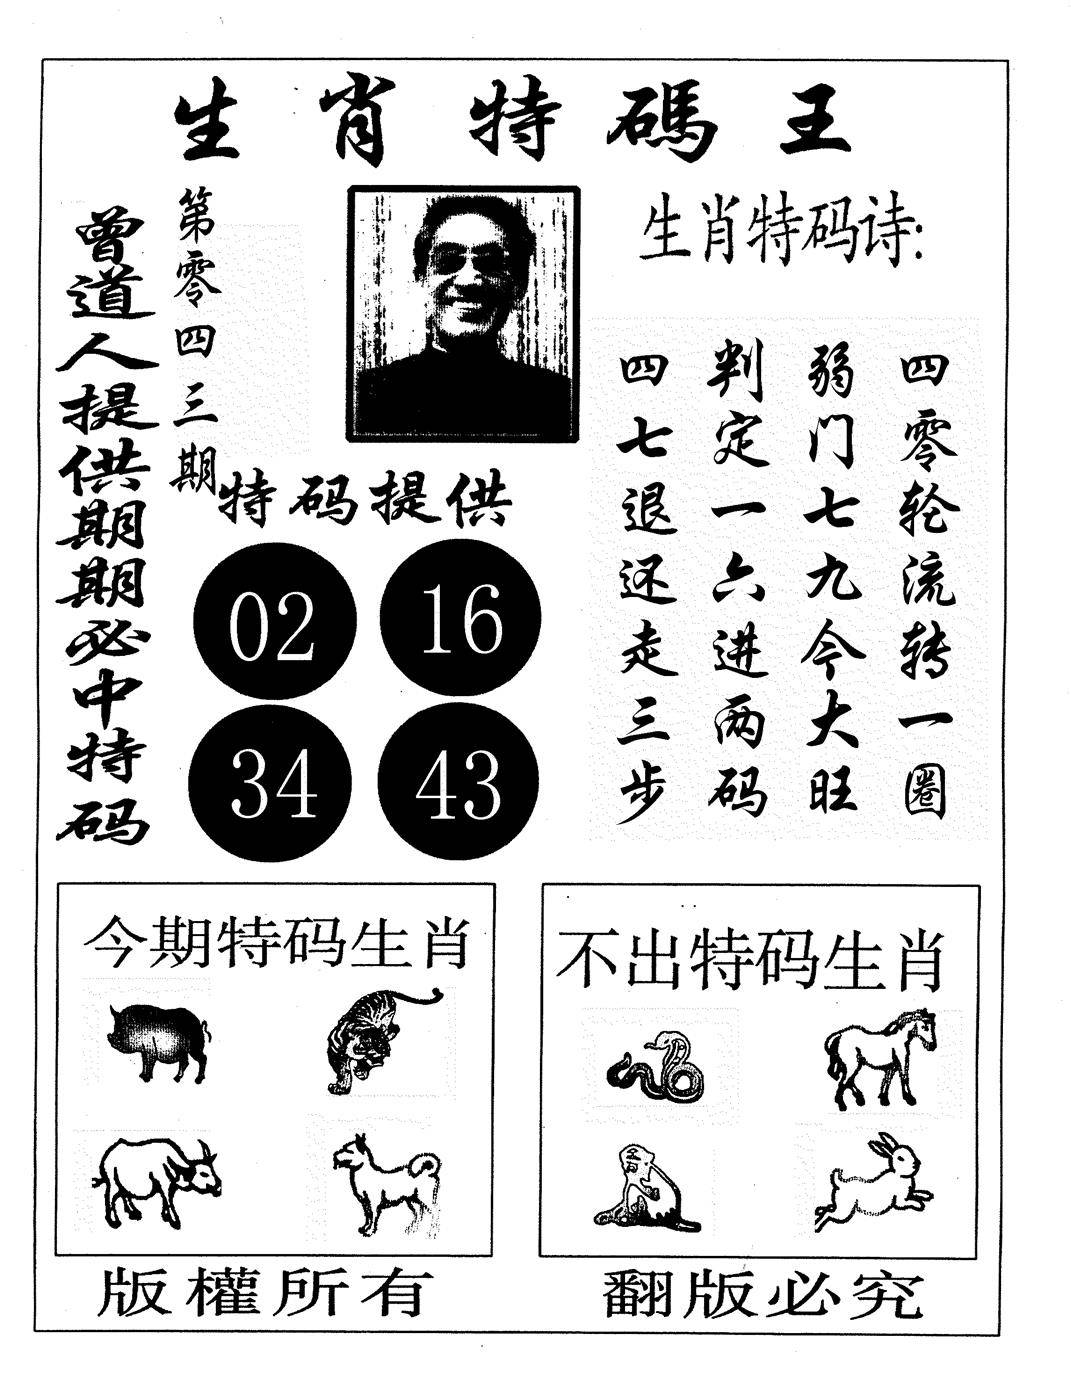 生肖特碼王
曾道人提供期期必中特码
第零四三期
生肖特码诗:
四零轮流转一圈
弱门七九今大旺
判定一六进两码
四七退还走三步
特码提供
02 16
34 43
今期特码生肖
不出特码生肖
版權所有
翻版必究